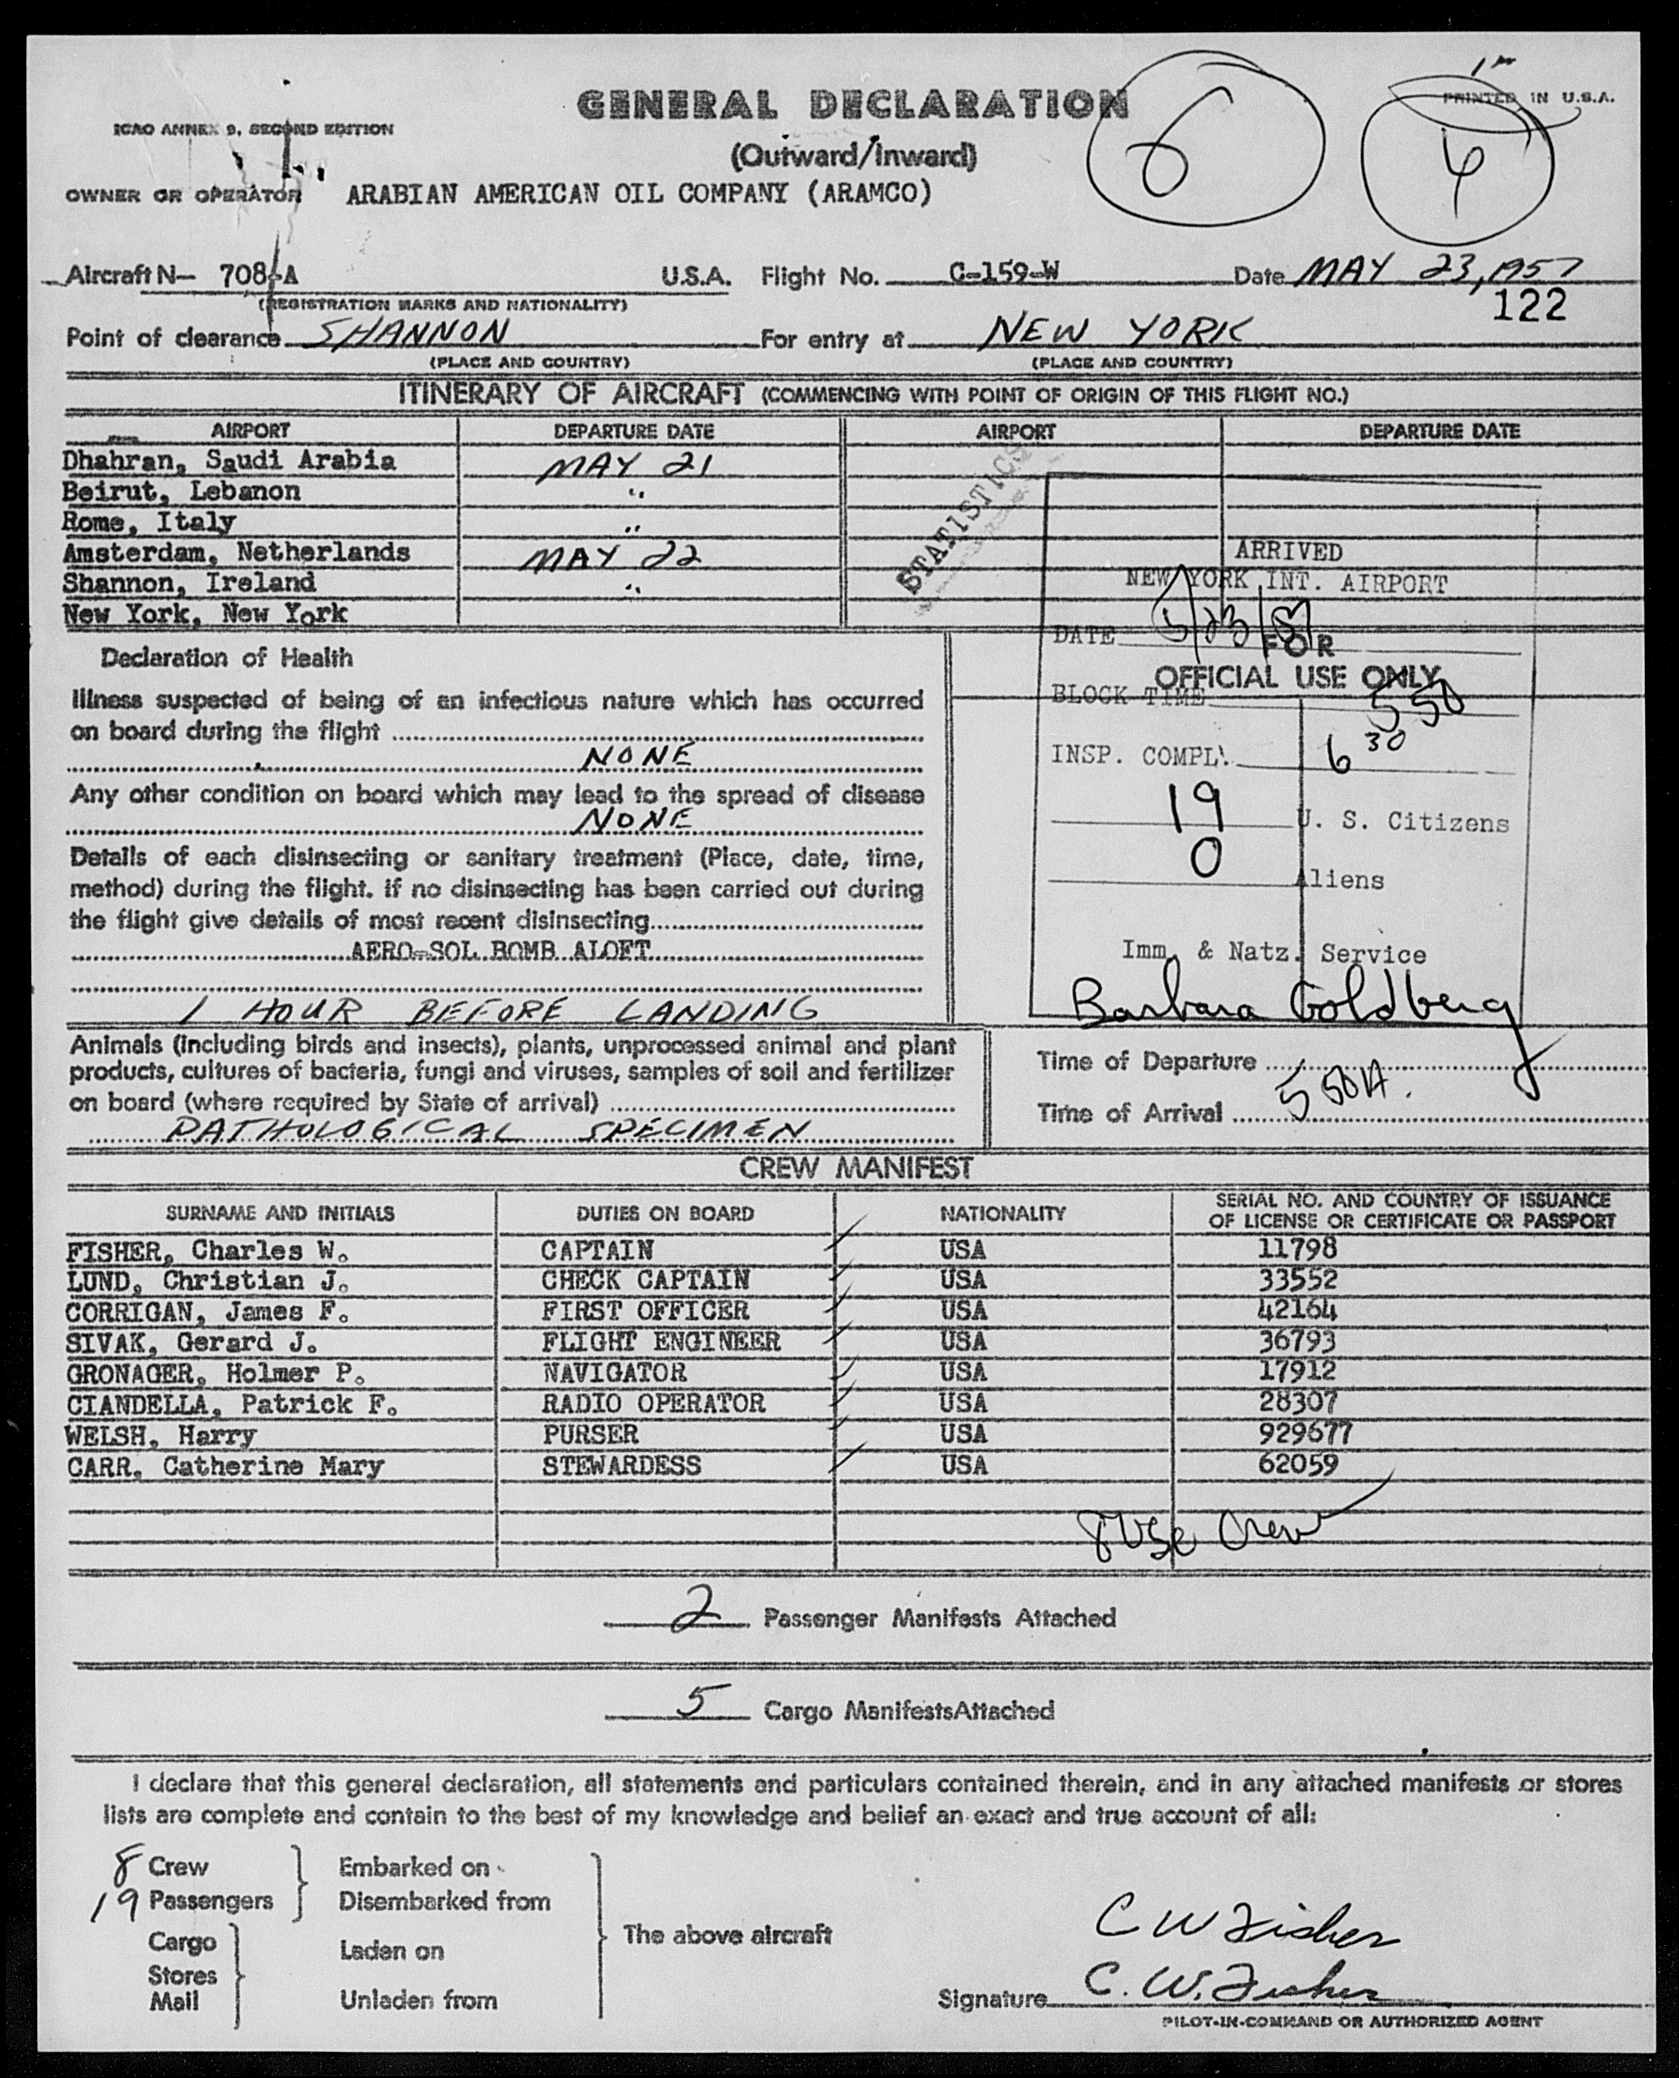 GENERAL DECLARATION
6
4
PRINTED IN U.S.A.
ICAO ANNEX 9, SECOND EDITION
(Outward/Inward)
OWNER OR OPERATOR ARABIAN AMERICAN OIL COMPANY (ARAMCO)
Aircraft N— 708-A U.S.A. Flight No. C-159-W Date MAY 23, 1957
(REGISTRATION MARKS AND NATIONALITY)
122
Point of clearance SHANNON For entry at NEW YORK
(PLACE AND COUNTRY) (PLACE AND COUNTRY)
ITINERARY OF AIRCRAFT (COMMENCING WITH POINT OF ORIGIN OF THIS FLIGHT NO.)
AIRPORT DEPARTURE DATE AIRPORT DEPARTURE DATE
Dhahran, Saudi Arabia MAY 21
Beirut, Lebanon "
Rome, Italy "
Amsterdam, Netherlands MAY 22
Shannon, Ireland "
New York, New York
STATISTICS
ARRIVED
NEW YORK INT. AIRPORT
DATE 5/23/57
FOR
OFFICIAL USE ONLY
BLOCK TIME 550
INSP. COMPL. 6 30
19 U. S. Citizens
0 Aliens
Imm. & Natz. Service
Barbara Goldberg
Declaration of Health
Illness suspected of being of an infectious nature which has occurred
on board during the flight
NONE
Any other condition on board which may lead to the spread of disease
NONE
Details of each disinsecting or sanitary treatment (Place, date, time,
method) during the flight. If no disinsecting has been carried out during
the flight give details of most recent disinsecting
AERO-SOL BOMB ALOFT
1 HOUR BEFORE LANDING
Animals (including birds and insects), plants, unprocessed animal and plant
products, cultures of bacteria, fungi and viruses, samples of soil and fertilizer
on board (where required by State of arrival)
PATHOLOGICAL SPECIMEN
Time of Departure
Time of Arrival 550A.
CREW MANIFEST
SURNAME AND INITIALS DUTIES ON BOARD NATIONALITY SERIAL NO. AND COUNTRY OF ISSUANCE
OF LICENSE OR CERTIFICATE OR PASSPORT
FISHER, Charles W. CAPTAIN USA 11798
LUND, Christian J. CHECK CAPTAIN USA 33552
CORRIGAN, James F. FIRST OFFICER USA 42164
SIVAK, Gerard J. FLIGHT ENGINEER USA 36793
GRONAGER, Holmer P. NAVIGATOR USA 17912
CIANDELLA, Patrick F. RADIO OPERATOR USA 28307
WELSH, Harry PURSER USA 929677
CARR, Catherine Mary STEWARDESS USA 62059
8 USC Crew
2 Passenger Manifests Attached
5 Cargo Manifests Attached
I declare that this general declaration, all statements and particulars contained therein, and in any attached manifests or stores
lists are complete and contain to the best of my knowledge and belief an exact and true account of all:
8 Crew Embarked on
19 Passengers Disembarked from
The above aircraft
Cargo Laden on
Stores
Mail Unladen from
C W Fisher
Signature C. W. Fisher
PILOT-IN-COMMAND OR AUTHORIZED AGENT